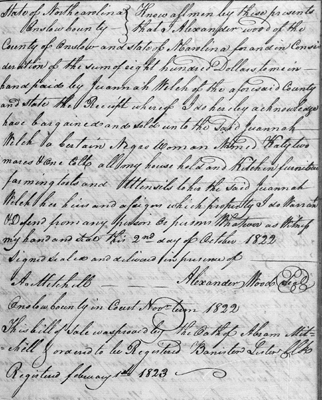 State of North carolina } Know all men by these presents
Onslow county } that I Alexander wood of the
County of Onslow and State of N carolina for and in Consi
deration of the sum of eight hundred Dollars to me in
hand paid by Juannah Welch of the aforesaid County
and State the Receipt whereof I do hereby acknowledge
have bargained and sold unto the Said Juannah
Welch a Certain Negro Woman two
mares & one Colt all my house held and Kitchen furniture
farming tools and Uttensils to her the Said Juannah
Welch her heirs and assigns which property I do Warrant
& Defend from any person or persons Whatever as Witness
my hand and this 2nd day of October 1822
Signed Sealed and delivered in presence of
A Mitchell Alexander Wood Seal
Onslow county in Court Novr term 1822
This bill of Sale was proved by the Oath of Abram Mit-
chell & ordered to be Registered Banister Lester Clk
Registered february 1st 1823